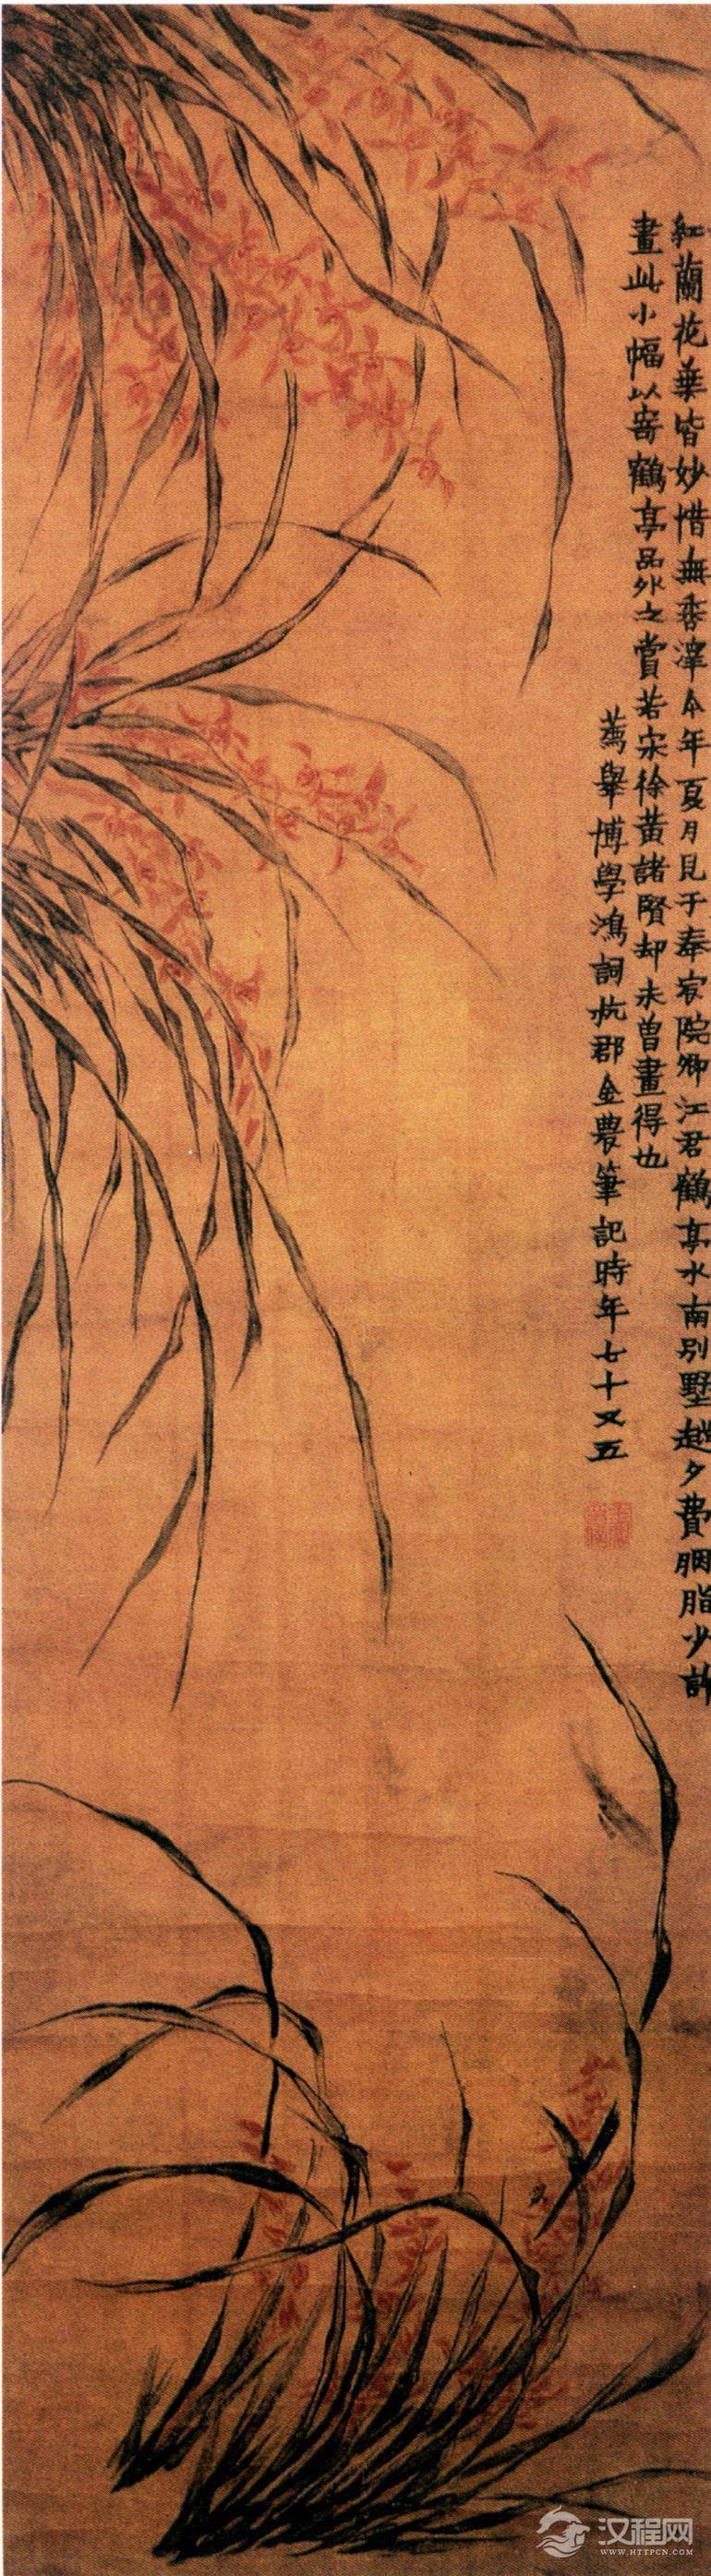 紅蘭花葉皆妙惜無香澤今年夏月見于奉宸院卿江君鶴亭水南別墅越夕費胭脂少許
畫此小幅以寄鶴亭品外之賞若宋徐黃諸賢却未曽畫得也
薦舉博學鴻詞杭郡金農筆記時年七十又五
汉程网
WWW.HTTPCN.COM